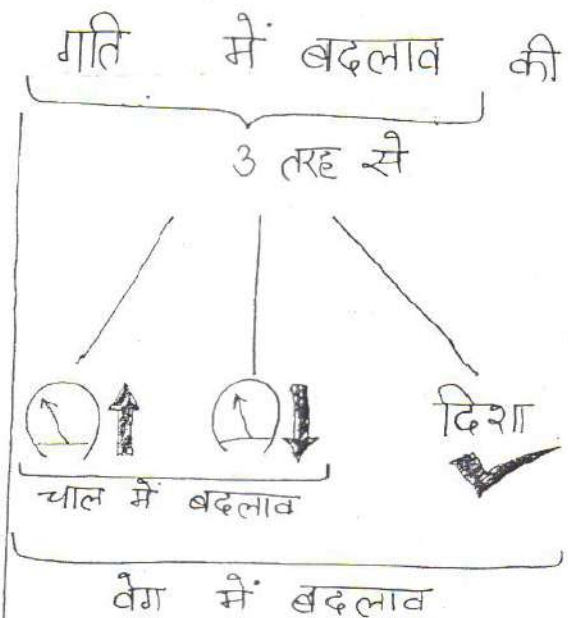 गति में बदलाव की
3 तरह से
दिशा
चाल में बदलाव
वेग में बदलाव